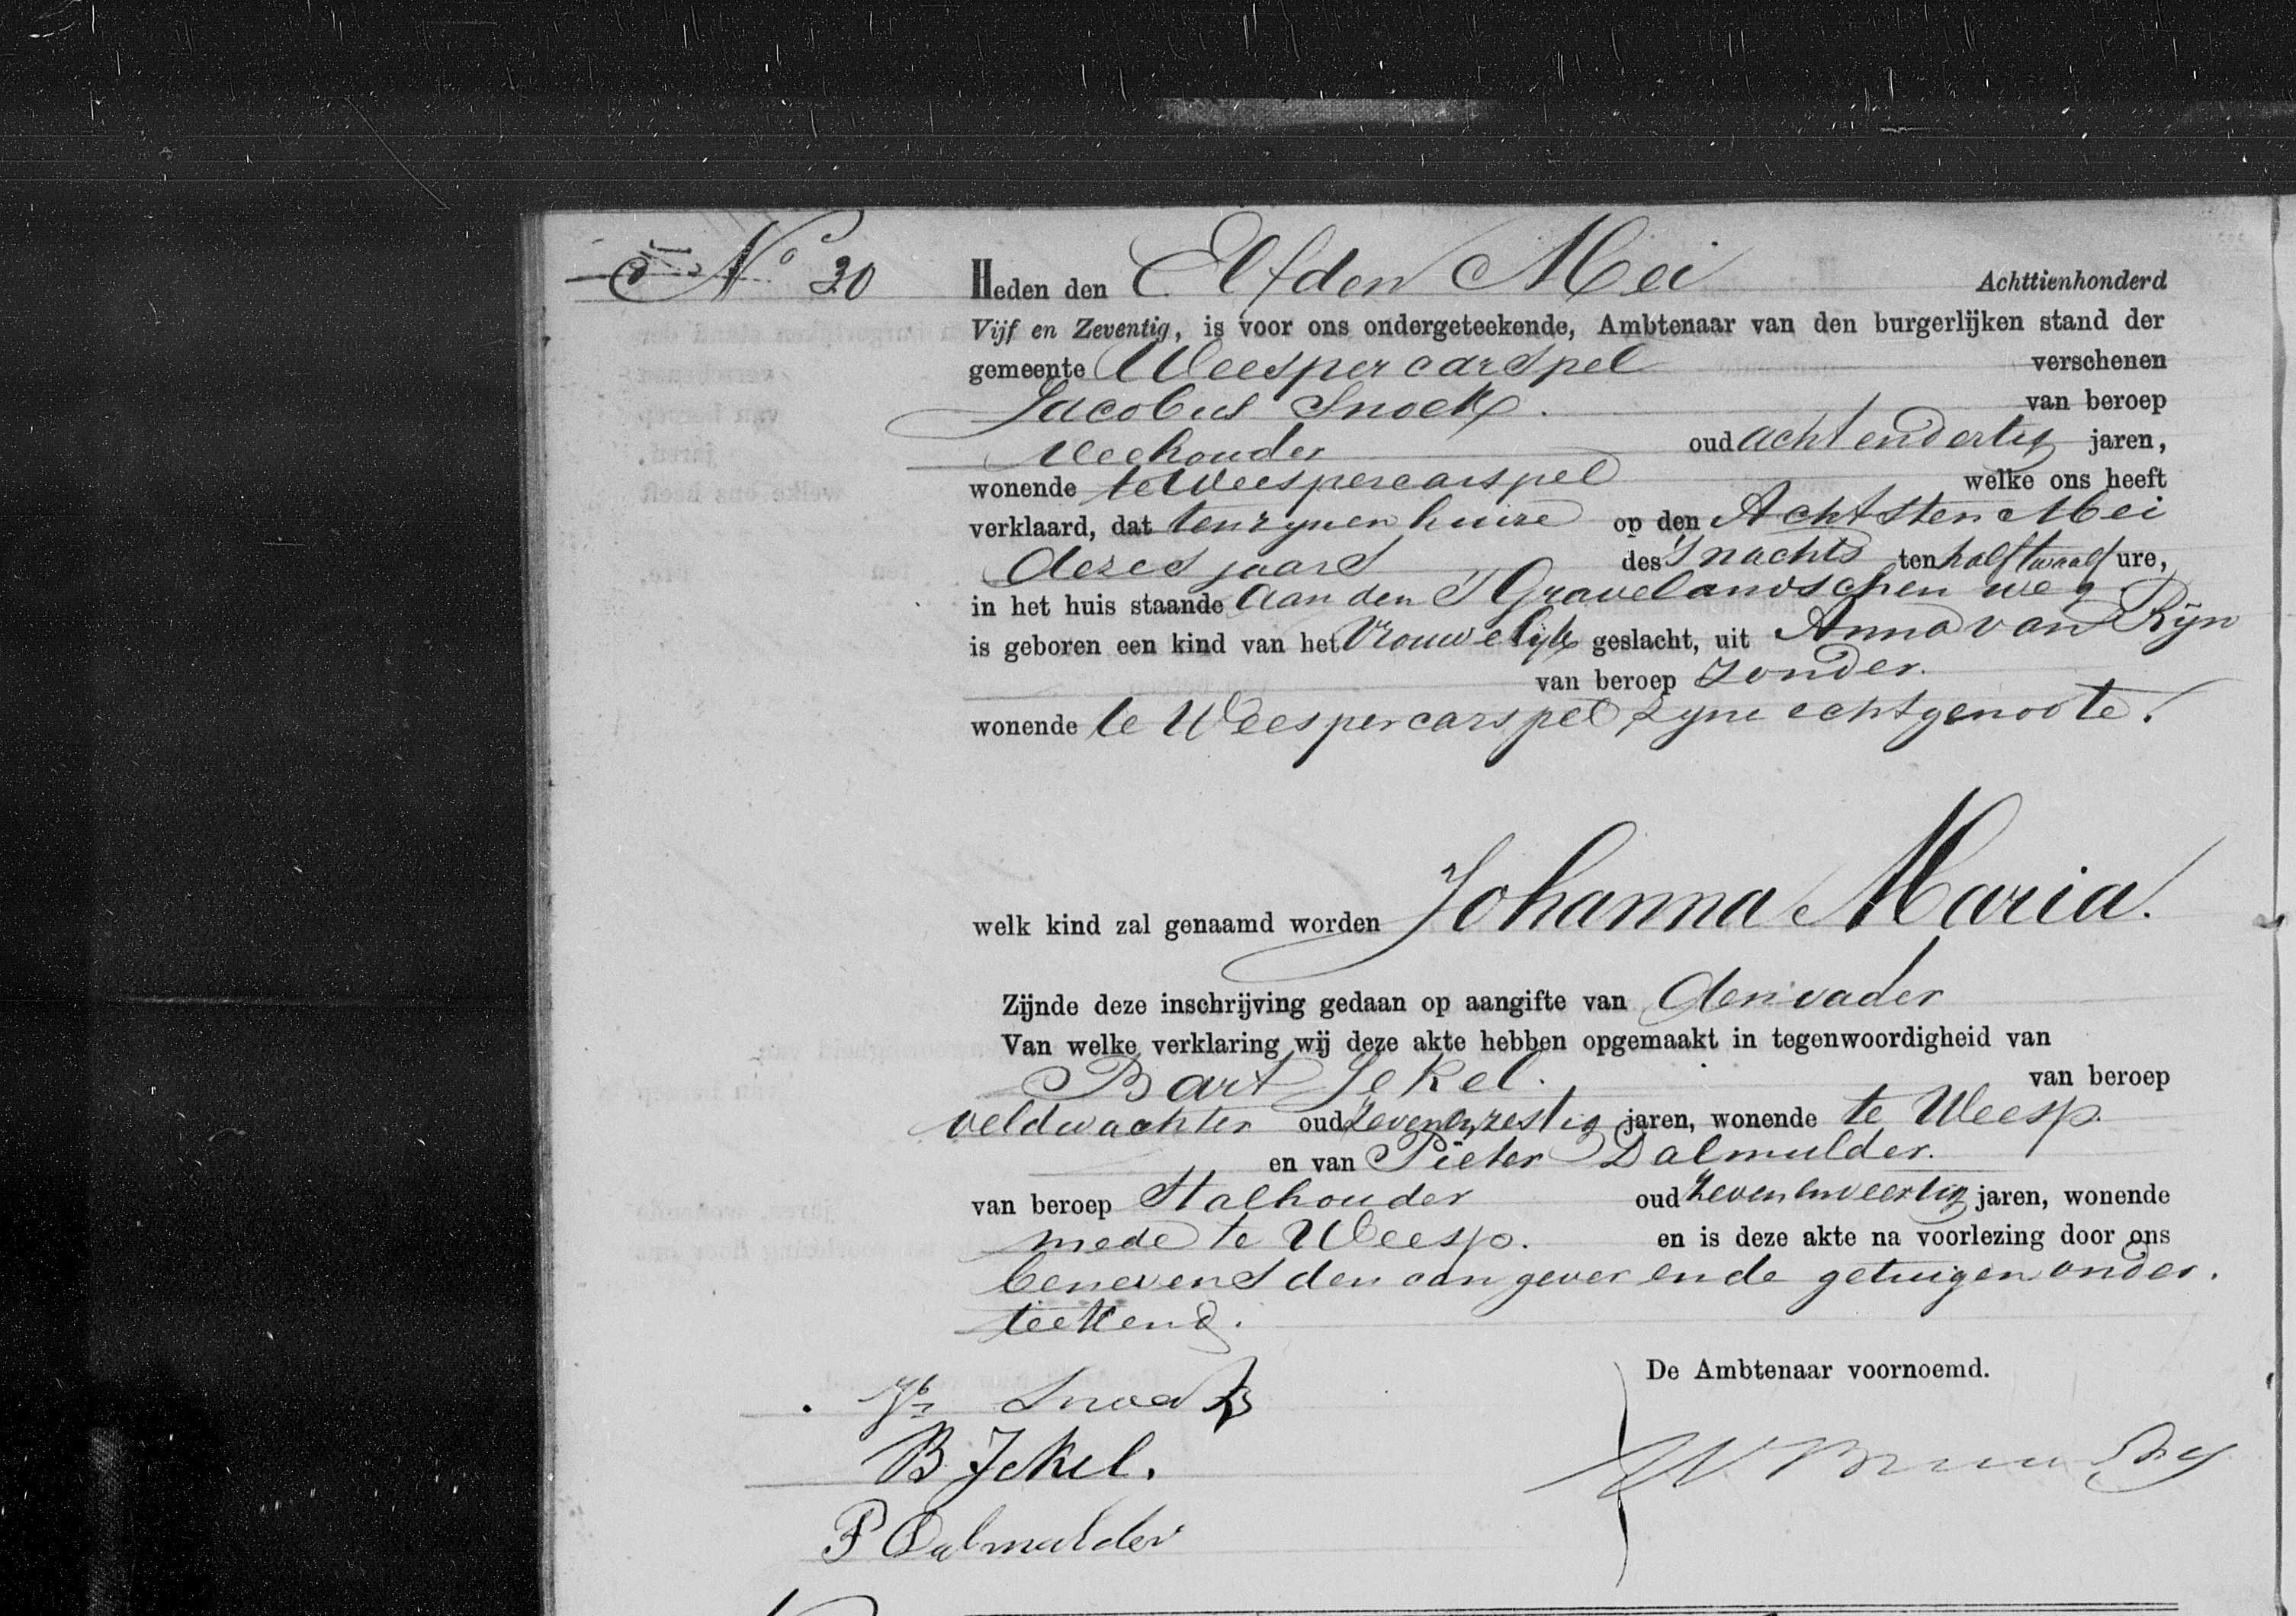 No 30
Heden den Elfden Mei Achttienhonderd
Vijf en Zeventig, is voor ons ondergeteekende, Ambtenaar van den burgerlijken stand der
gemeente Weespercarspel verschenen
Jacobus Snoek. van beroep
Veehouder oud achtendertig jaren,
wonende te Weespercarspel welke ons heeft
verklaard, dat ten zijnen huize op den Achtsten Mei
dezes jaars des 's nachts ten half twaalf ure,
in het huis staande aan den 'S Gravelandschen weg
is geboren een kind van het Vrouwelijk geslacht, uit Anna van Rijn
van beroep zonder.
wonende te Weespercarspel zijne echtgenoote.
welk kind zal genaamd worden Johanna Maria.
Zijnde deze inschrijving gedaan op aangifte van den vader
Van welke verklaring wij deze akte hebben opgemaakt in tegenwoordigheid van
Bart Jekel. van beroep
veldwachter oud zevenenzestig jaren, wonende te Weesp.
en van Pieter Dalmulder.
van beroep Stalhouder oud zevenenveertig jaren, wonende
mede te Weesp. en is deze akte na voorlezing door ons
benevens den aangever en de getuigen onder.
teekend.
De Ambtenaar voornoemd.
Jb Snoek
B. Jekel.
P Dalmulder